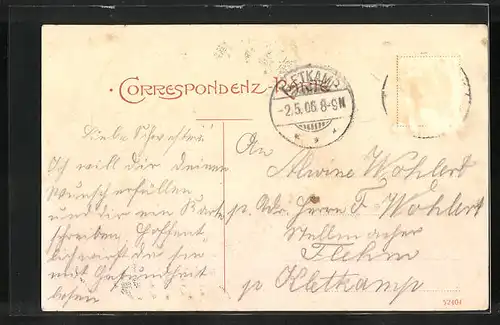 CORRESPONDENZ-KARTE
KLETKAMP
-2.5.06. 8-9N
Liebe Schwester!
Ich will dir deinen
Wunsch erfüllen
und dir ein Karte
schreiben. Hoffent
lich wirst du sie
mit Gesundheit
lesen
An
Alwine Wohlert
p. Adr. Herrn F. Wohlert
Stellmacher
Flehm
p Kletkamp